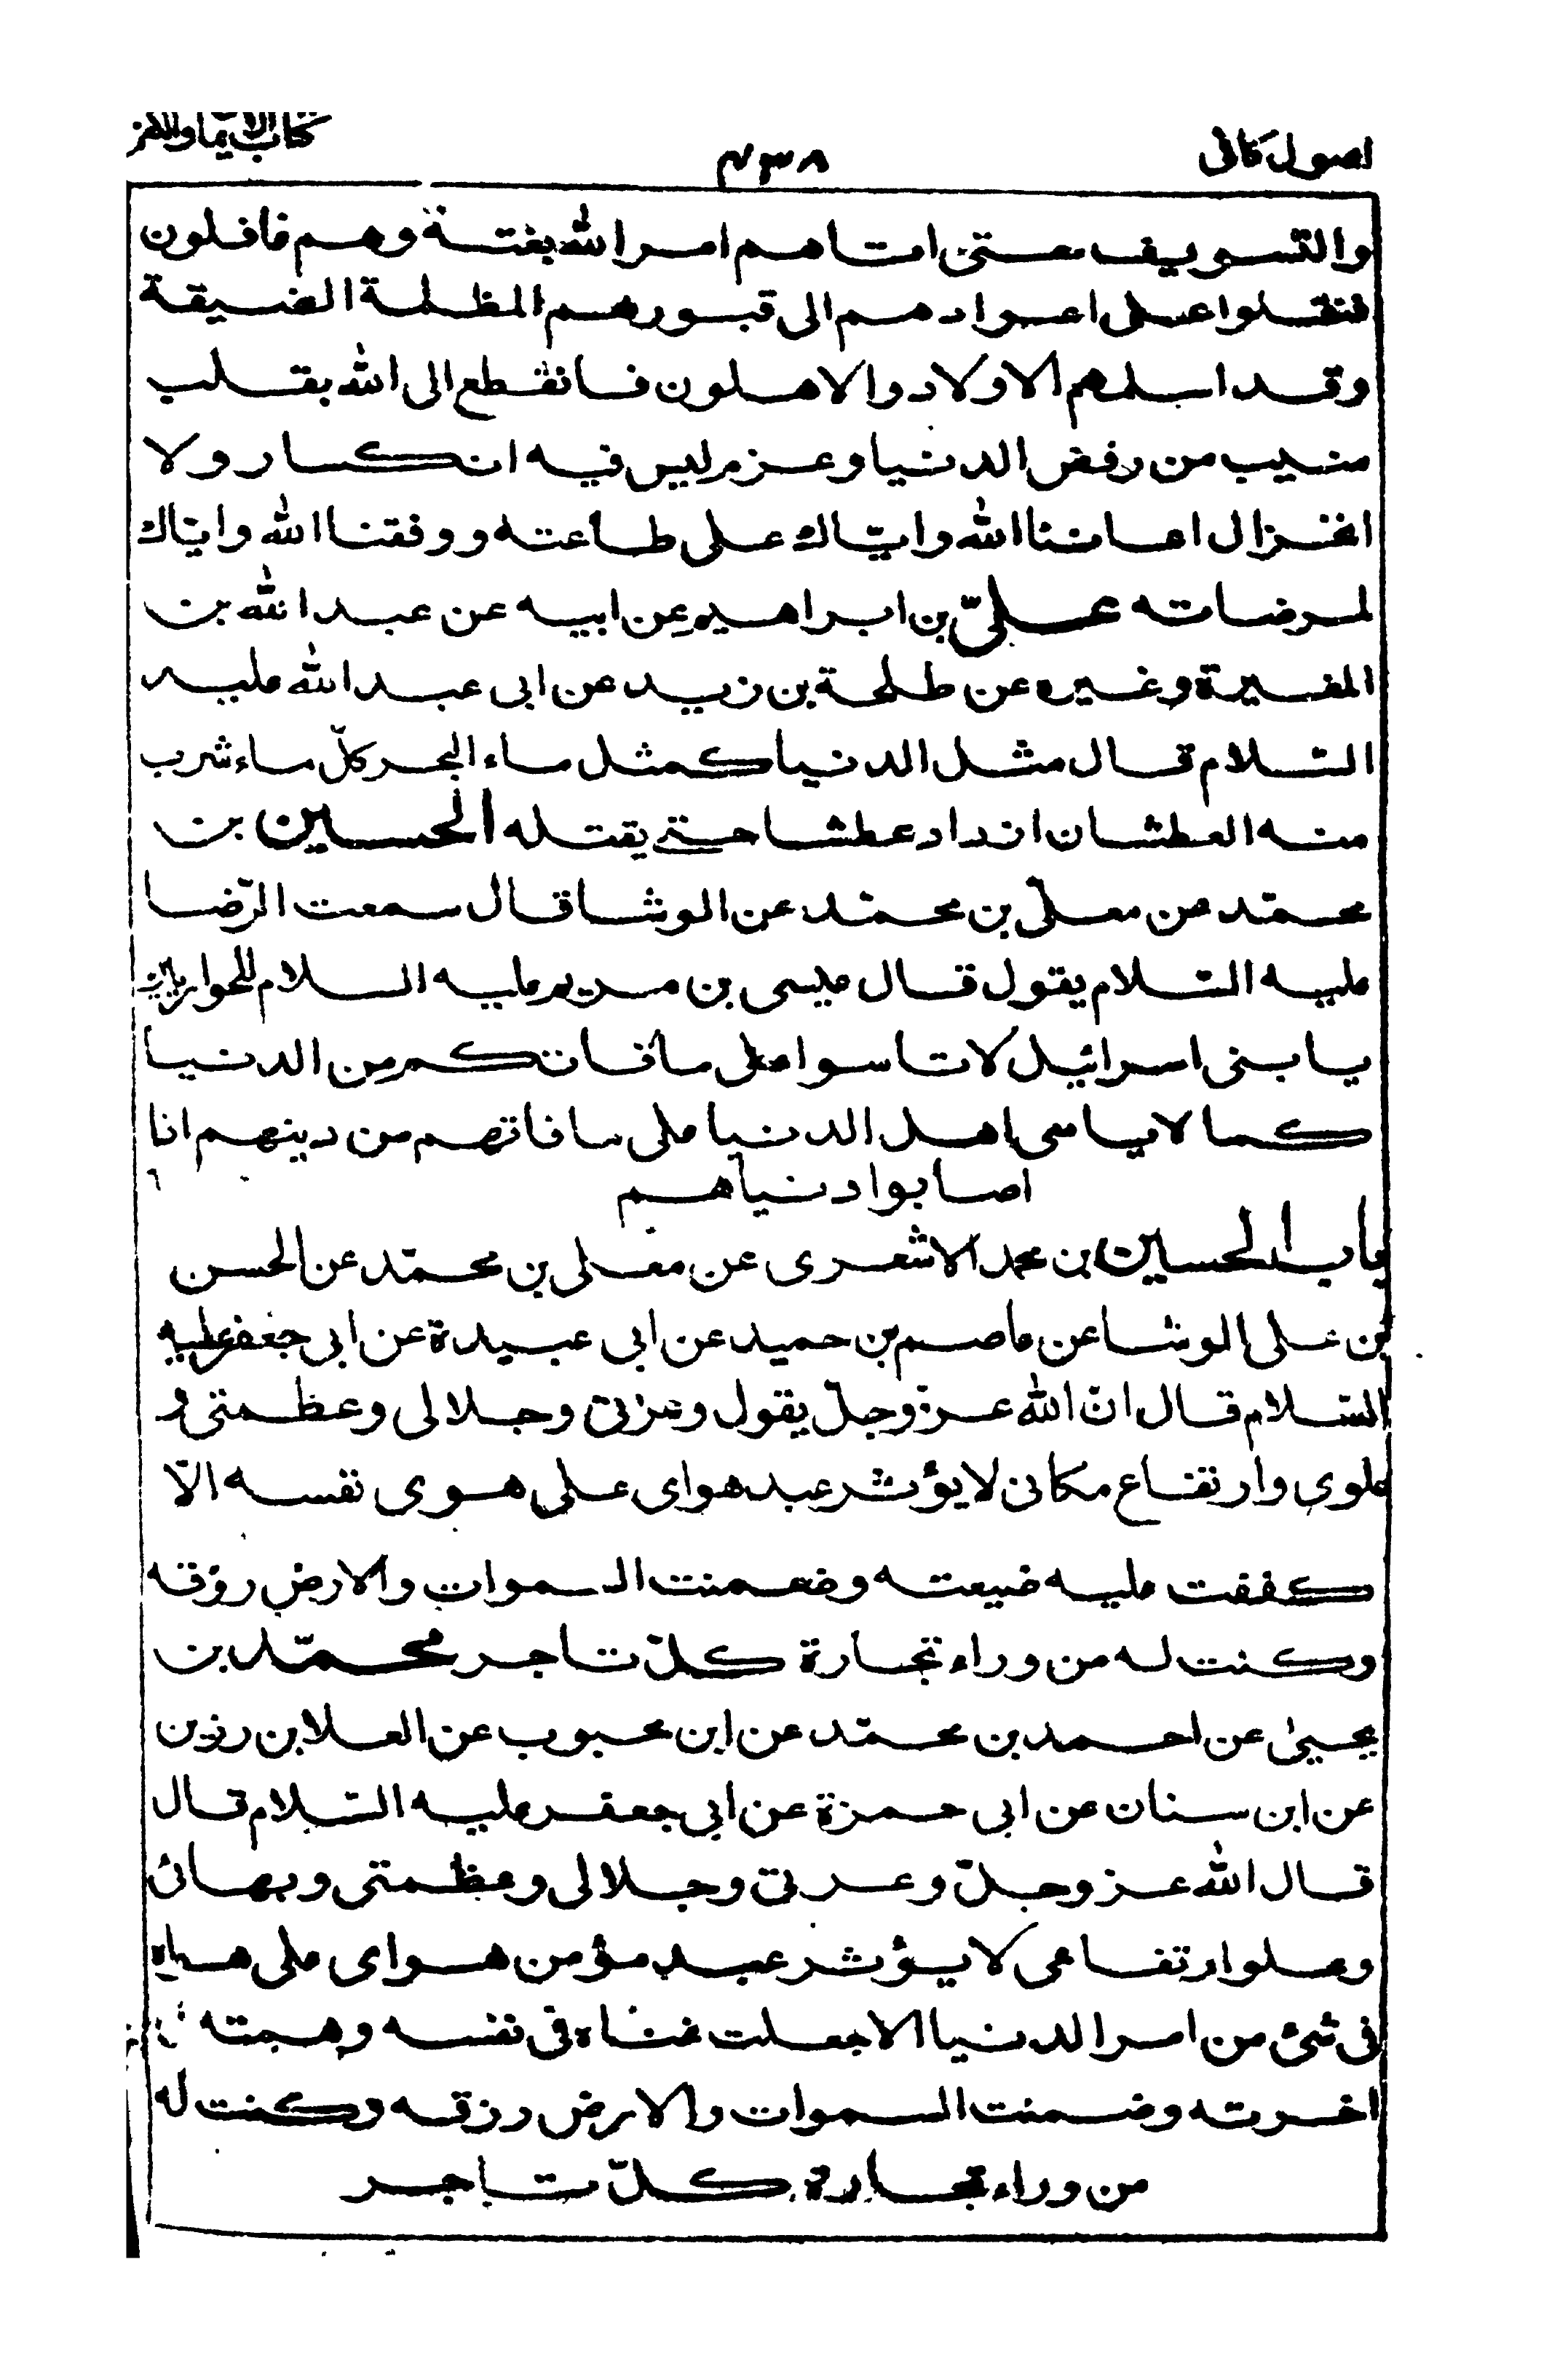 اصول كافى
٤٣٨
كتاب الايمان والكفر
والتسويف حتى اتاهم امر الله بغتة وهم غافلون
فنقلوا على اعوادهم الى قبورهم المظلمة الضيقة
وقد اسلمهم الاولاد والاهلون فانقطع الى الله بقلب
منيب من رفض الدنيا وعزم ليس فيه انكسار ولا
انخزال اعاننا الله واياك على طاعته ووفقنا الله واياك
لمرضاته علىّ بن ابراهيم عن ابيه عن عبد الله بن
المغيرة وغيره عن طلحة بن زيد عن ابى عبد الله عليه
السّلام قال مثل الدنيا كمثل ماء البحر كلّ ماء شرب
منه العطشان ازداد عطشا حتى يقتله الحسين بن
محمّد عن معلّى بن محمّد عن الوشا قال سمعت الرّضا
عليه السّلام يقول قال عيسى بن مريم عليه السلام للحواريين
يا بنى اسرائيل لا تاسوا على ما فاتكم من الدنيا
كما لا ياسى اهل الدنيا على ما فاتهم من دينهم اذا
اصابوا دنياهم
باب الحسين بن محمد الاشعرى عن معلى بن محمّد عن الحسن
بن على الوشا عن عاصم بن حميد عن ابى عبيدة عن ابى جعفر عليه
السّلام قال انّ الله عزّ وجلّ يقول وعزتى وجلالى وعظمتى و
علوى وارتفاع مكانى لا يؤثر عبد هواى على هوى نفسه الّا
كففت عليه ضيعته وضمنت السموات والارض رزقه
وكنت له من وراء تجارة كلّ تاجر محمّد بن
يحيىٰ عن احمد بن محمّد عن ابن محبوب عن العلا بن رزين
عن ابن سنان عن ابى حمزة عن ابى جعفر عليه السّلام قال
قال الله عز وجلّ وعزتى وجلالى وعظمتى وبهائى
وعلو ارتفاعى لا يؤثر عبد مؤمن هواى على هواه
فى شئ من امر الدنيا الا جعلت غناه فى نفسه وهمته فى
اخرته وضمنت السموات والارض رزقه وكنت له
من وراء تجارة كلّ تاجر